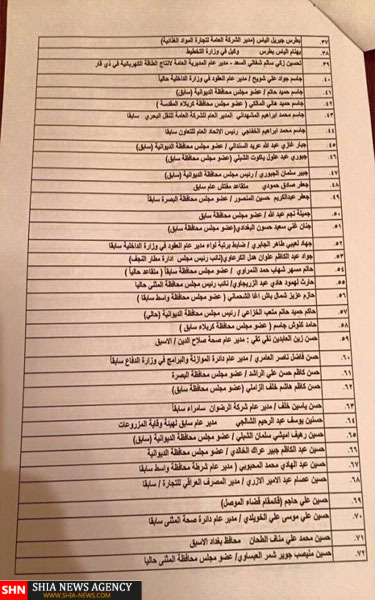 ٣٧. بطرس جبريل الياس (مدير الشركة العامة لتجارة المواد الغذائية)
٣٨. بهنام الياس بطرس وكيل في وزارة التخطيط
٣٩. تحسين زكي سالم شعلان السعد - مدير عام المديرية العامة لانتاج الطاقة الكهربائية في ذي قار
٤٠. جاسم جواد علي شويح / مدير عام العقود في وزارة الداخلية حالياً
٤١. جاسم حميد حاتم / عضو مجلس محافظة الديوانية (سابق)
٤٢. جاسم حميد هاني المالكي ( عضو مجلس محافظة كربلاء المقدسة )
٤٣. جاسم محمد ابراهيم المشهداني المدير العام للشركة العامة للنقل البحري سابقا
٤٤. جاسم محمد ابراهيم الخفاجي رئيس الاتحاد العام للتعاون سابقا
٤٥. جبار غازي عبد الله عريد السنداني / عضو مجلس محافظة الديوانية (سابق)
٤٦. جبوري عبد علول ياكوت الشبلي (عضو مجلس محافظة سابق)
٤٧. جبير سلمان الجبوري / رئيس مجلس محافظة الديوانية (سابق)
٤٨. جعفر صادق حمودي متقاعد مفتش عام سابق
٤٩. جعفر عبدالكريم حسين المنصور / عضو مجلس محافظة البصرة سابقاً
٥٠. جميلة نجم عبد الله / عضو مجلس محافظة سابق
٥١. جنان غني سعيد حسون البغدادي(عضو مجلس محافظة سابق)
٥٢. جهاد لعيبي طاهر الجابري / ضابط برتبة لواء مدير عام العقود في وزارة الداخلية سابقا
٥٣. جواد عبد الكاظم علوان هدل الكرعاوي(نائب رئيس مجلس ادارة مطار النجف)
٥٤. حاتم مسهر شهاب حمد النمراوي / عضو مجلس محافظة سابقاً ( متقاعد حالياً )
٥٥. حارث لهمود هادي عبد الزريجاوي/ نائب رئيس مجلس المثنى حاليا
٥٦. حازم عزيز شمال باش اغا الشحماني ( عضو مجلس محافظة واسط سابقا )
٥٧. حاكم حميد حاتم متعب الخزاعي / رئيس مجلس محافظة الديوانية (حالي)
٥٨. حامد كنوش جاسم ( عضو مجلس محافظة كربلاء سابق )
٥٩. حسن زين العابدين نقي تقي : مدير عام صحة صلاح الدين / الاسبق
٦٠. حسن فاضل ناصر العامري / مدير عام دائرة الموازنة والبرامج في وزارة الدفاع سابقاً
٦١. حسن كاظم حسن علي الراشد / عضو مجلس محافظة البصرة
٦٢. حسن كاظم هاشم خلف الزاملي (عضو مجلس محافظة سابق)
٦٣. حسن ياسين خلف / مدير عام شركة الرضوان سامراء سابقاً
٦٤. حسنين يوسف عبد الرحيم الشالجي مدير عام سابق لهيئة وقاية المزروعات
٦٥. حسين رهيف اميشي سلمان الشبلي / عضو مجلس محافظة الديوانية (سابق)
٦٦. حسين عبد الكاظم جبير عراك الخالدي / عضو مجلس محافظة الديوانية
٦٧. حسين عبد الهادي محمد المحبوبي ( مدير عام شرطة محافظة واسط سابقاً
٦٨. حسين عصام عبد الامير الازري / مدير المصرف العراقي للتجارة / سابقا
٦٩. حسين علي حاجم (قائمقام قضاء الموصل)
٧٠. حسين علي موسى علي الخويلدي / مدير عام دائرة صحة المثنى سابقا
٧١. حسين محمد علي مناف الطحان محافظ بغداد الاسبق
٧٢. حسين منيصب جوير شمر العيساوي/ عضو مجلس محافظة المثنى حاليا
SHN SHIA NEWS AGENCY
WWW.SHIA-NEWS.COM